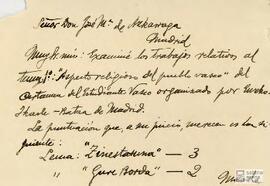 Señor Don José Mª de Azkarraga
Madrid
Muy Sr. mio: Examiné los trabajos relativos al
tema 1º: "Aspecto religioso del pueblo vasco" del
Certamen del Estudiante Vasco organizado por Eusko-
Ikasle-Batza de Madrid.
La puntuación que, a mi juicio, merecen es la si-
guiente:
Lema: "Zinestasuna" — 3
" "Gure Borda" — 2